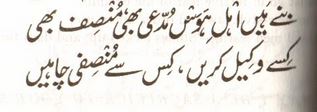 بنے ہیں اہل ہوس مُدّعی بھی مُنصِف بھی
کِسے وکیل کریں، کس سے مُنصفی چاہیں